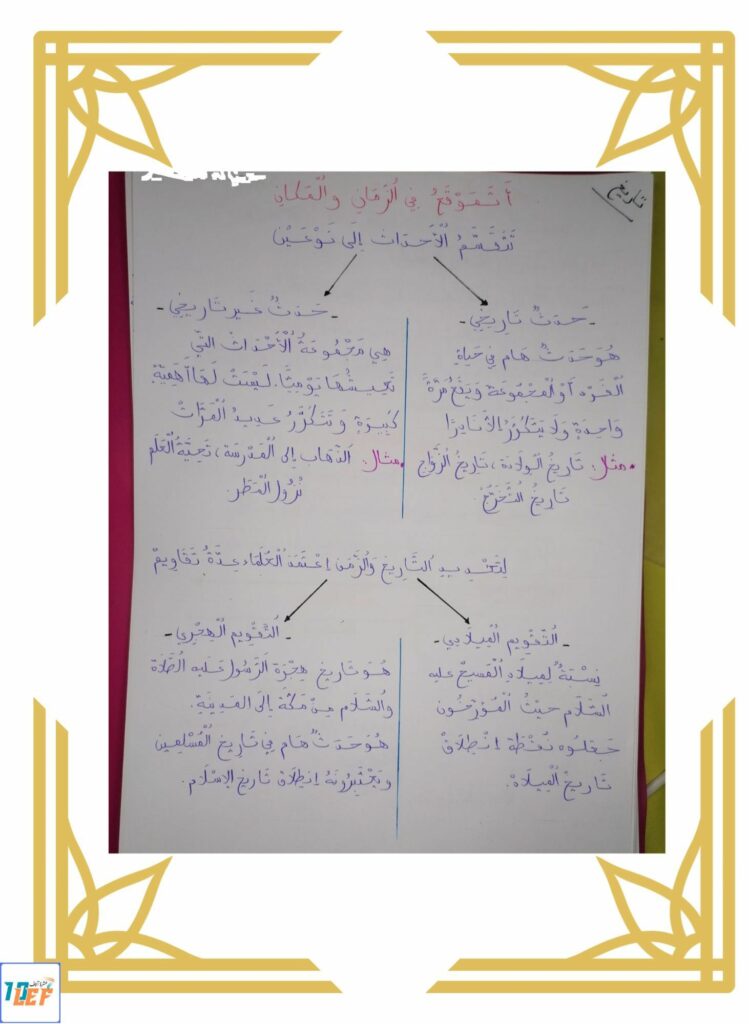 تاريخ
أَتَمَوْقَعُ فِي الزَّمَانِ وَالْمَكَانِ
تَنْقَسِمُ الْأَحْدَاثُ إِلَى نَوْعَيْنِ
- حَدَثٌ تَارِيخِي -
هُوَ حَدَثٌ هَام فِي حَيَاةِ
الْفَرْدِ أَوِ الْمَجْمُوعَةِ وَيَقَعُ مَرَّةً
وَاحِدَةً وَلَا يَتَكَرَّرُ إِلَّا نَادِرًا
• مثال: تَارِيخُ الْوِلَادَة، تَارِيخُ الزَّوَاج
تَارِيخُ التَّخَرُّجْ.
- حَدَثٌ غَير تَارِيخِي -
هِيَ مَجْمُوعَةُ الْأَحْدَاثِ الَّتِي
نَعِيشُهَا يَوْمِيًّا. لَيْسَتْ لَهَا أَهَمِيَّةٌ
كَبِيرَةٌ وَتَتَكَرَّرُ عَدِيدُ الْمَرَّاتْ
• مثال: الذَّهَاب إِلى الْمَدْرَسَة، تَحِيَّةُ الْعَلَم
نُزُول الْمَطَر.
لِتَحْدِيدِ التَّارِيخِ وَالزَّمَنِ اعْتَمَدَ الْعُلَمَاء عِدَّةُ تَقَاوِيمْ
- التَّقْوِيم الْمِيلَادِي -
نِسْبَةً لِمِيلَادِ الْمَسِيحْ عليه
السَّلَام حَيْثُ الْمُؤَرِّخُون
جَعَلُوه نُقْطَةَ انْطِلَاقْ
تَارِيخْ الْمِيلَادْ.
- التَّقْوِيم الْهِجْرِي -
هُوَ تَارِيخ هِجْرَة الرَّسُول عَلَيه الصَّلَاة
وَالسَّلَام مِنْ مَكَّة إِلَى الْمَدِينَةِ.
هُوَ حَدَثٌ هَام فِي تَارِيخ الْمُسْلِمِين
وَيَعْتَبِرُونَهُ انْطِلَاق تَارِيخ الإِسْلَام.